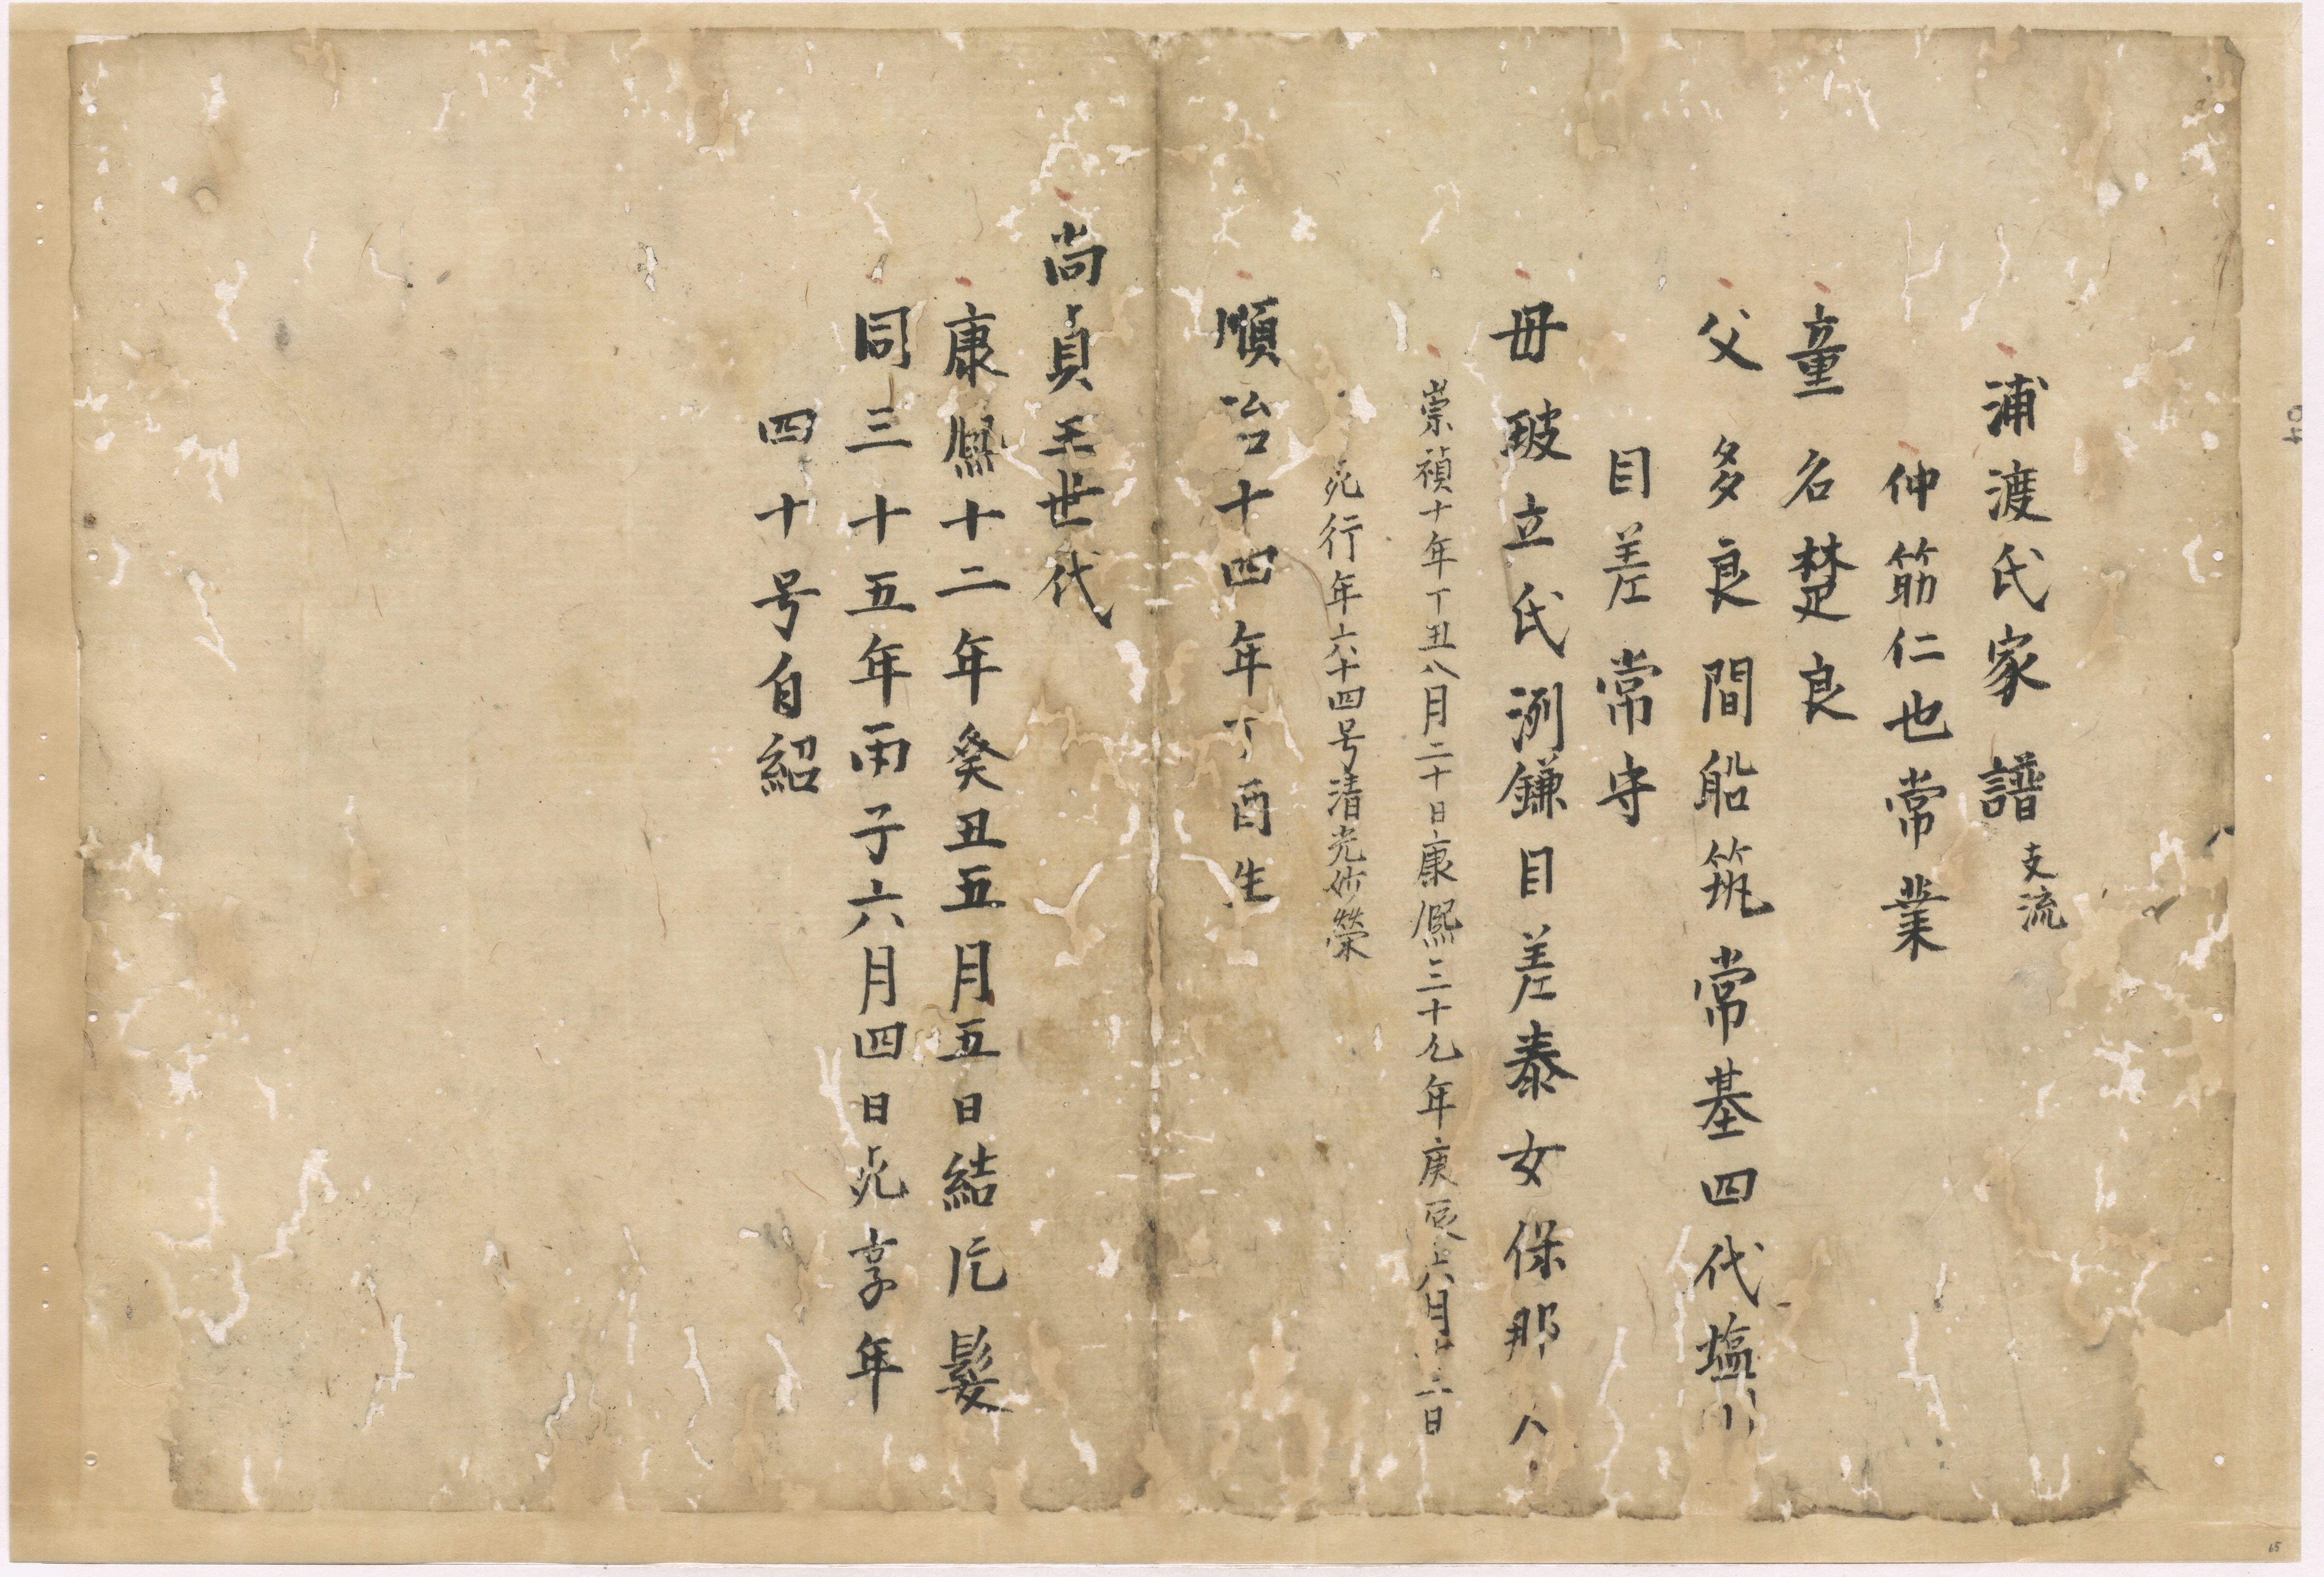 浦渡氏家譜 支流
仲筋仁也常業
童名楚良
父多良間船筑常基四代塩川
目差常守
母玻立氏洌鎌目差泰女保那人
崇禎十年丁丑八月二十日康熈三十九年庚辰六月 二日
死行年六十四号清光妙榮
順治十四年丁酉生
尚貞王世代
康熈十二年癸丑五月五日結片髪
同三十五年丙子六月四日死享年
四十号自紹
65